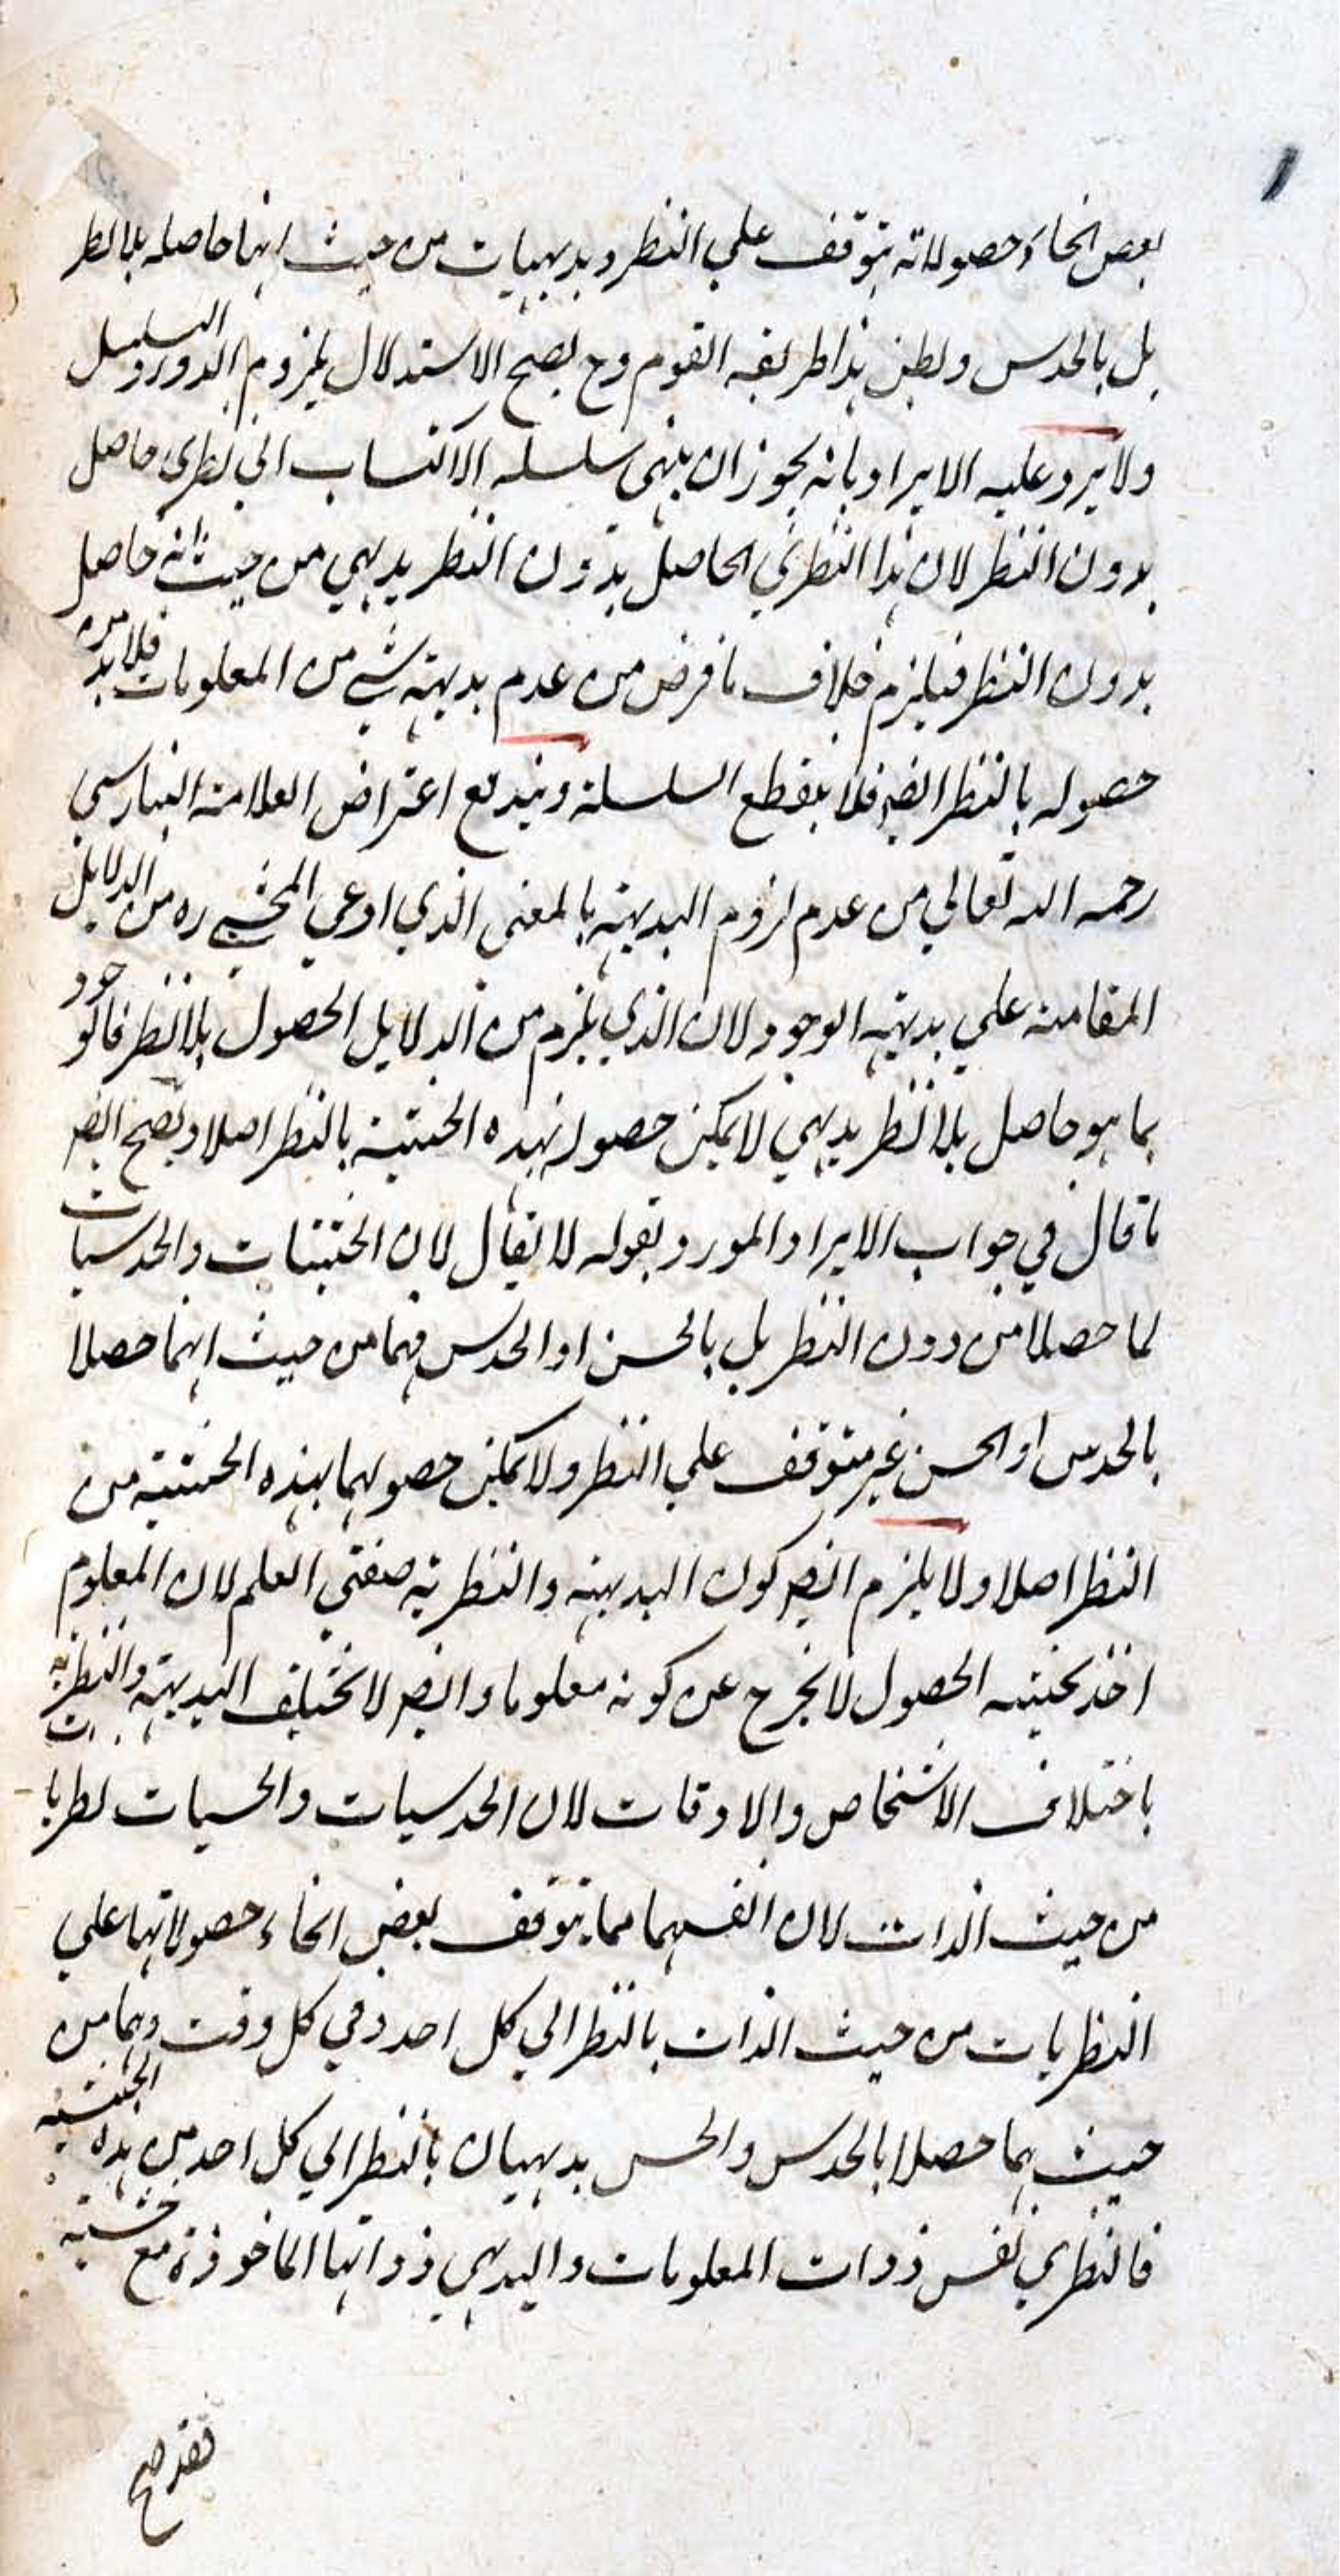 بعض انحاء حصولاته يتوقف علي النظر وبديهيات من حيث انها حاصله بلا نظر
بل بالحدس ويطبق هذا طريقه القوم وح يصح الاستدلال بلزوم الدور والتسلسل
ولا يرد عليه الايراد بانه يجوز ان ينتهي سلسله الاكتساب الي نظري حاصل
بدون النظر لان هذا النظري الحاصل بدون النظر بديهي من حيث انه حاصل
بدون النظر فيلزم خلاف ما فرض من عدم بديهته شي من المعلومات فلا بد من
حصوله بالنظر ايضا فلا ينقطع السلسلة ويندفع اعتراض العلامة البنارسي
رحمه الله تعالي من عدم لزوم البديهته بالمعني الذي ادعي المحشي ره من الدلايل
المقامة علي بديهته الوجود لان الذي يلزم من الدلايل الحصول بلا نظر فالوجود
بما هو حاصل بلا نظر بديهي لا يمكن حصوله بهذه الحيثية بالنظر اصلا ويصح ايضا
ما قال في جواب الايراد المورد بقوله لا يقال لان الحسيات والحدسيات
لما حصلا من دون النظر بل بالحس او الحدس فهما من حيث انهما حصلا
بالحدس او الحس غير متوقف علي النظر ولا يمكن حصولهما بهذه الحيثية من
النظر اصلا ولا يلزم ايضا كون البديهته والنظرية صفتي العلم لان المعلوم
اخذ بحيثيه الحصول لا يخرج عن كونه معلوما وايضا لا يختلف البديهته والنظرية
باختلاف الاشخاص والاوقات لان الحدسيات والحسيات نظريات
من حيث الذات لان انفسهما مما يتوقف بعض انحاء حصولاتها علي
النظريات من حيث الذات بالنظر الي كل احد وفي كل وقت وهما من
حيث هما حصلا بالحدس والحس بديهيان بالنظر الي كل احد من هذه الحيثية
فالنظري نفس ذوات المعلومات والبديهي ذواتها الماخوذة مع حيثية
فقد صح